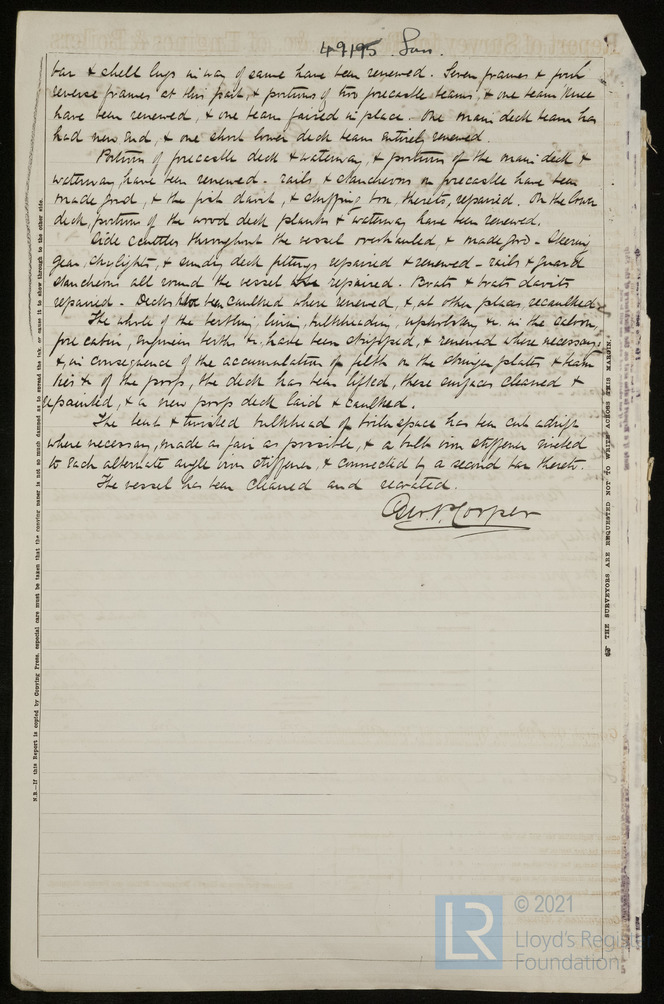 49195 Lon.
bar & shell lugs in way of same have been renewed. Seven frames & four
reverse frames at this part, & portions of two forecastle beams, & one beam knee
have been renewed, & one beam faired in place. One main deck beam has
had new end, & one short lower deck beam entirely renewed.
Portions of forecastle deck & waterway, & portions of the main deck &
waterway, have been renewed. Rails & stanchions on forecastle have been
made good, & the fish davit, & chuffing box, thereto, repaired. On the lower
deck, portions of the wood deck planks & waterway have been renewed.
Side scuttles throughout the vessel overhauled, & made good - Steering
gear, skylights, & sundry deck fittings repaired & renewed - rails & guard
stanchions all round the vessel repaired. Boats & boats davits
repaired - Decks been caulked where renewed, & at other places recaulked.
The whole of the berthing, lining, bulkheading, upholstery, &c. in the saloon,
fore cabin, engineers berths &c. have been stripped, & renewed where necessary,
&, in consequence of the accumulation of filth on the stringer plates & beam
ties & of the poop, the deck has been lifted, these surfaces cleaned &
repainted, & a new poop deck laid & caulked.
The bent & twisted bulkhead of boiler space has been cut adrift
where necessary, made as fair as possible, & a bulb iron stiffener riveted
to each alternate angle iron stiffener, & connected by a second bar thereto.
The vessel has been cleaned and recoated.
Cooper
N.B.—If this Report is copied by Copying Press, especial care must be taken that the copying paper is not so much damped as to spread the ink, or cause it to show through to the other side.
THE SURVEYORS ARE REQUESTED NOT TO WRITE ACROSS THIS MARGIN.
LR
© 2021
Lloyd's Register
Foundation